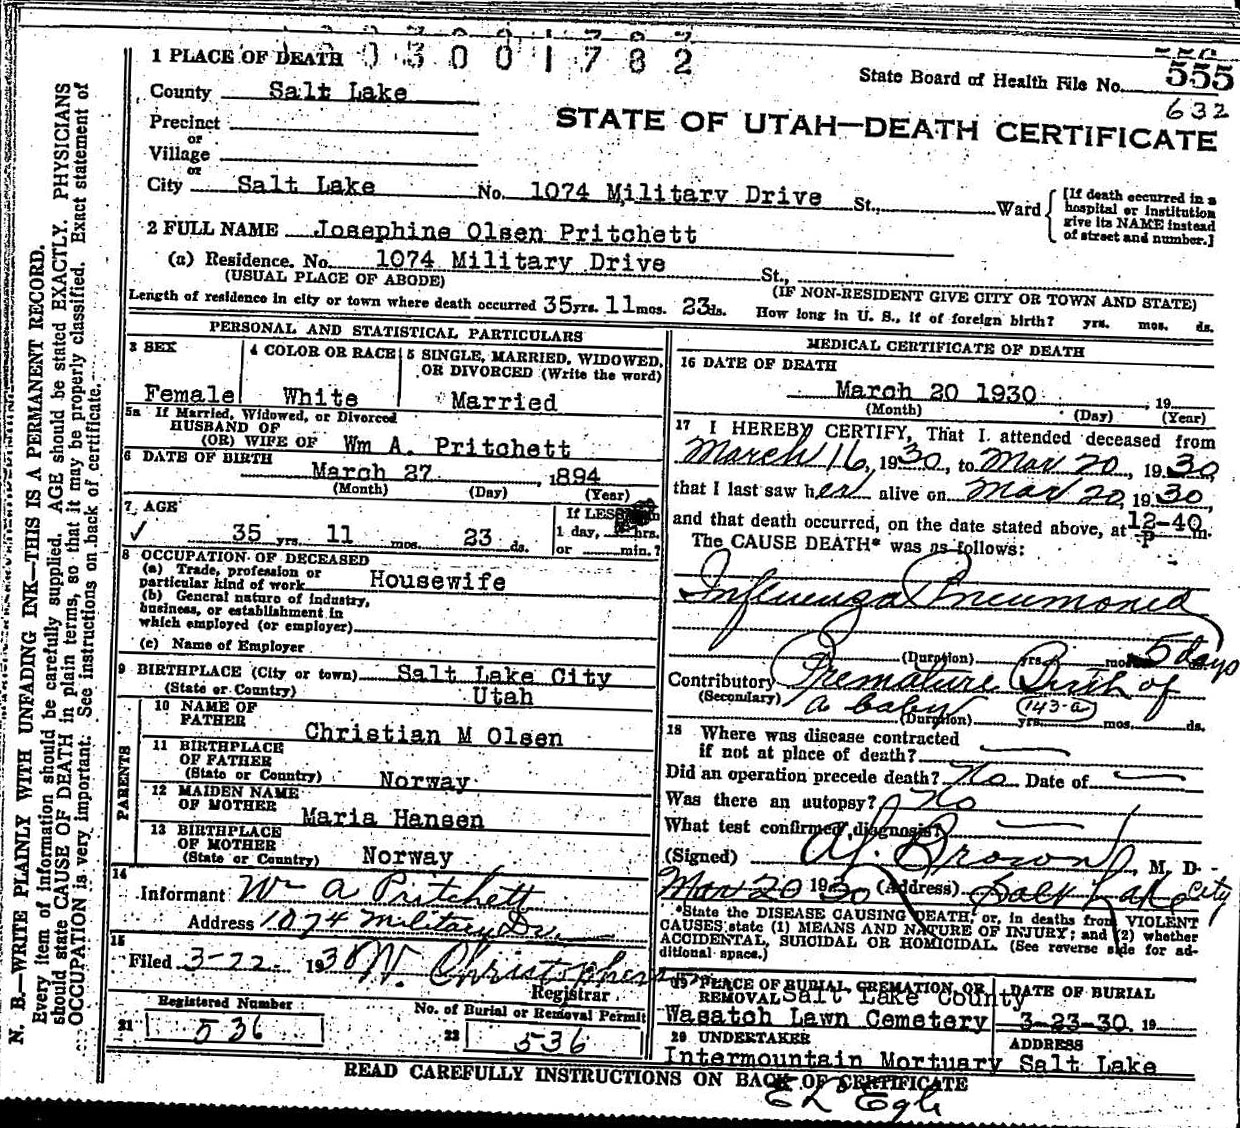 0300 1782
1 PLACE OF DEATH
State Board of Health File No. 555
632
County Salt Lake
STATE OF UTAH—DEATH CERTIFICATE
Precinct
or
Village
or
City Salt Lake No. 1074 Military Drive St., Ward
[If death occurred in a
hospital or institution
give its NAME instead
of street and number.]
2 FULL NAME Josephine Olsen Pritchett
(a) Residence. No. 1074 Military Drive St.,
(USUAL PLACE OF ABODE) (IF NON-RESIDENT GIVE CITY OR TOWN AND STATE)
Length of residence in city or town where death occurred 35 yrs. 11 mos. 23 ds. How long in U. S., if of foreign birth? yrs. mos. ds.
PERSONAL AND STATISTICAL PARTICULARS
3 SEX
Female
4 COLOR OR RACE
White
5 SINGLE, MARRIED, WIDOWED,
OR DIVORCED (Write the word)
Married
5a If Married, Widowed, or Divorced
HUSBAND OF
(OR) WIFE OF Wm A. Pritchett
6 DATE OF BIRTH
March 27, 1894
(Month) (Day) (Year)
7 AGE
✓ 35 yrs. 11 mos. 23 ds.
If LESS
1 day, hrs.
or min.?
8 OCCUPATION OF DECEASED
(a) Trade, profession or
particular kind of work Housewife
(b) General nature of industry,
business, or establishment in
which employed (or employer)
(c) Name of Employer
9 BIRTHPLACE (City or town) Salt Lake City
(State or Country) Utah
PARENTS
10 NAME OF
FATHER
Christian M Olsen
11 BIRTHPLACE
OF FATHER
(State or Country) Norway
12 MAIDEN NAME
OF MOTHER
Maria Hansen
13 BIRTHPLACE
OF MOTHER
(State or Country) Norway
14
Informant Wm A Pritchett
Address 1074 Military Dr.
15
Filed 3-22 1930 W. Christophers
Registrar
Registered Number
21 536
No. of Burial or Removal Permit
22 536
MEDICAL CERTIFICATE OF DEATH
16 DATE OF DEATH
March 20 1930, 19
(Month) (Day) (Year)
17 I HEREBY CERTIFY, That I attended deceased from
March 16, 1930, to Mar 20, 1930,
that I last saw her alive on Mar 20, 1930,
and that death occurred, on the date stated above, at 12-40 P m.
The CAUSE DEATH* was as follows:
Influenza Pneumonia
(Duration) yrs. mos. 5 days
Contributory Premature Birth of
(Secondary) a baby (143-a)
(Duration) yrs. mos. ds.
18 Where was disease contracted
if not at place of death?
Did an operation precede death? No Date of
Was there an autopsy? No
What test confirmed diagnosis?
(Signed) Brown, M. D.
Mar 20 1930 (Address) Salt Lake City
*State the DISEASE CAUSING DEATH, or, in deaths from VIOLENT
CAUSES state (1) MEANS AND NATURE OF INJURY; and (2) whether
ACCIDENTAL, SUICIDAL OR HOMICIDAL. (See reverse side for ad-
ditional space.)
19 PLACE OF BURIAL, CREMATION OR
REMOVAL Salt Lake County
Wasatch Lawn Cemetery
DATE OF BURIAL
3-23-30. 19
20 UNDERTAKER
Intermountain Mortuary
ADDRESS
Salt Lake
READ CAREFULLY INSTRUCTIONS ON BACK OF CERTIFICATE
EL Egli
N. B.—WRITE PLAINLY WITH UNFADING INK—THIS IS A PERMANENT RECORD.
Every item of information should be carefully supplied. AGE should be stated EXACTLY. PHYSICIANS
should state CAUSE OF DEATH in plain terms, so that it may be properly classified. Exact statement of
OCCUPATION is very important. See instructions on back of certificate.